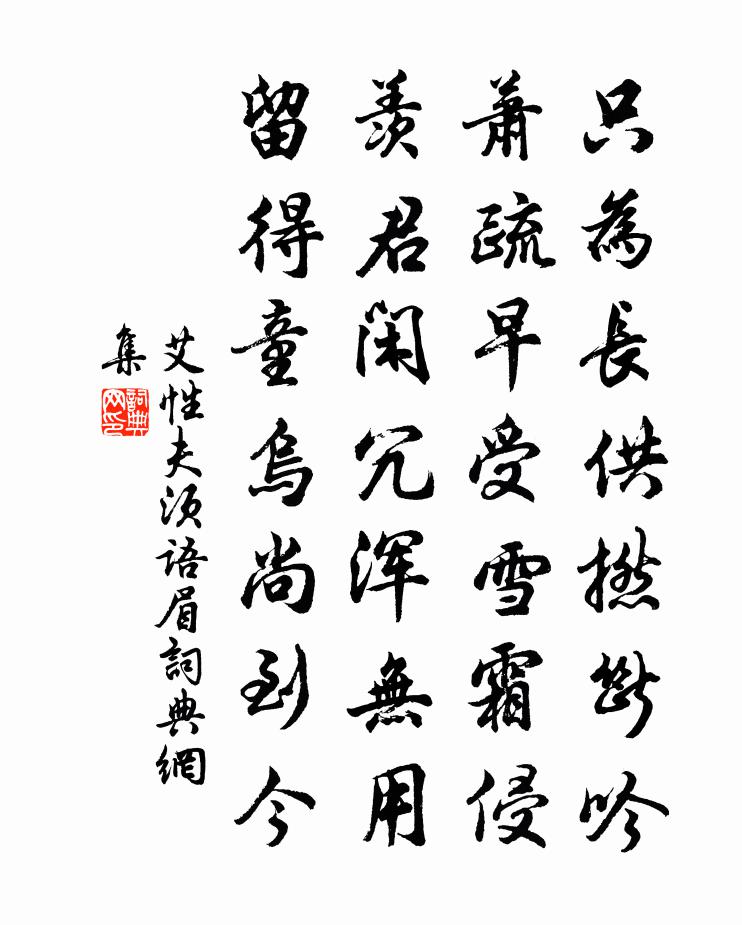 只為長供撚斷吟
蕭疏早受雪霜侵
羨君閑冗渾無用
留得童烏尚到今
艾性夫須語眉詞典網
集
詞典
网印